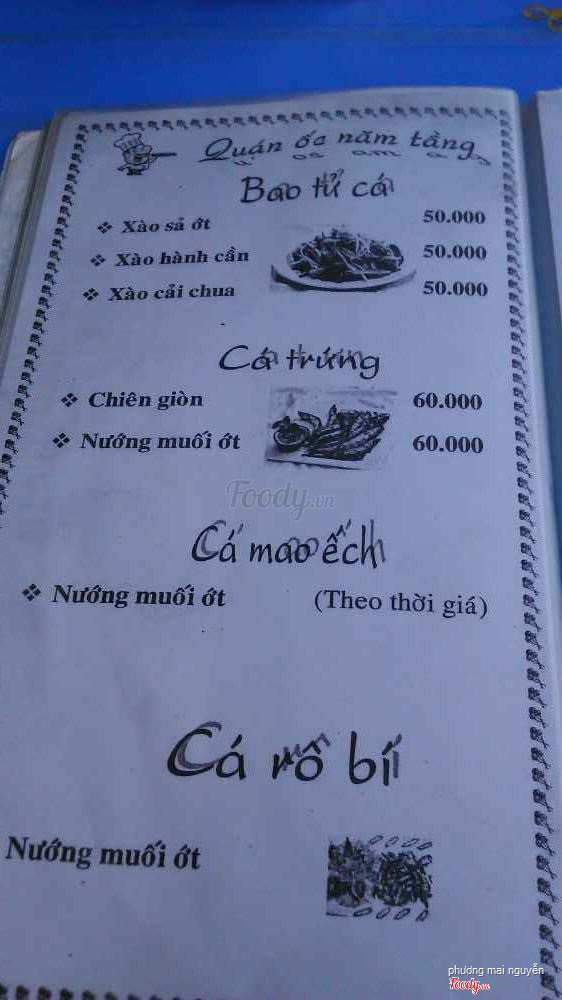 Quán ốc năm tầng
Bao tử cá
❖ Xào sả ớt 50.000
❖ Xào hành cần 50.000
❖ Xào cải chua 50.000
Cá trứng
❖ Chiên giòn 60.000
❖ Nướng muối ớt 60.000
Foody.vn
Cá mao ếch
❖ Nướng muối ớt (Theo thời giá)
Cá rô bí
Nướng muối ớt
phương mai nguyễn
Foody.vn